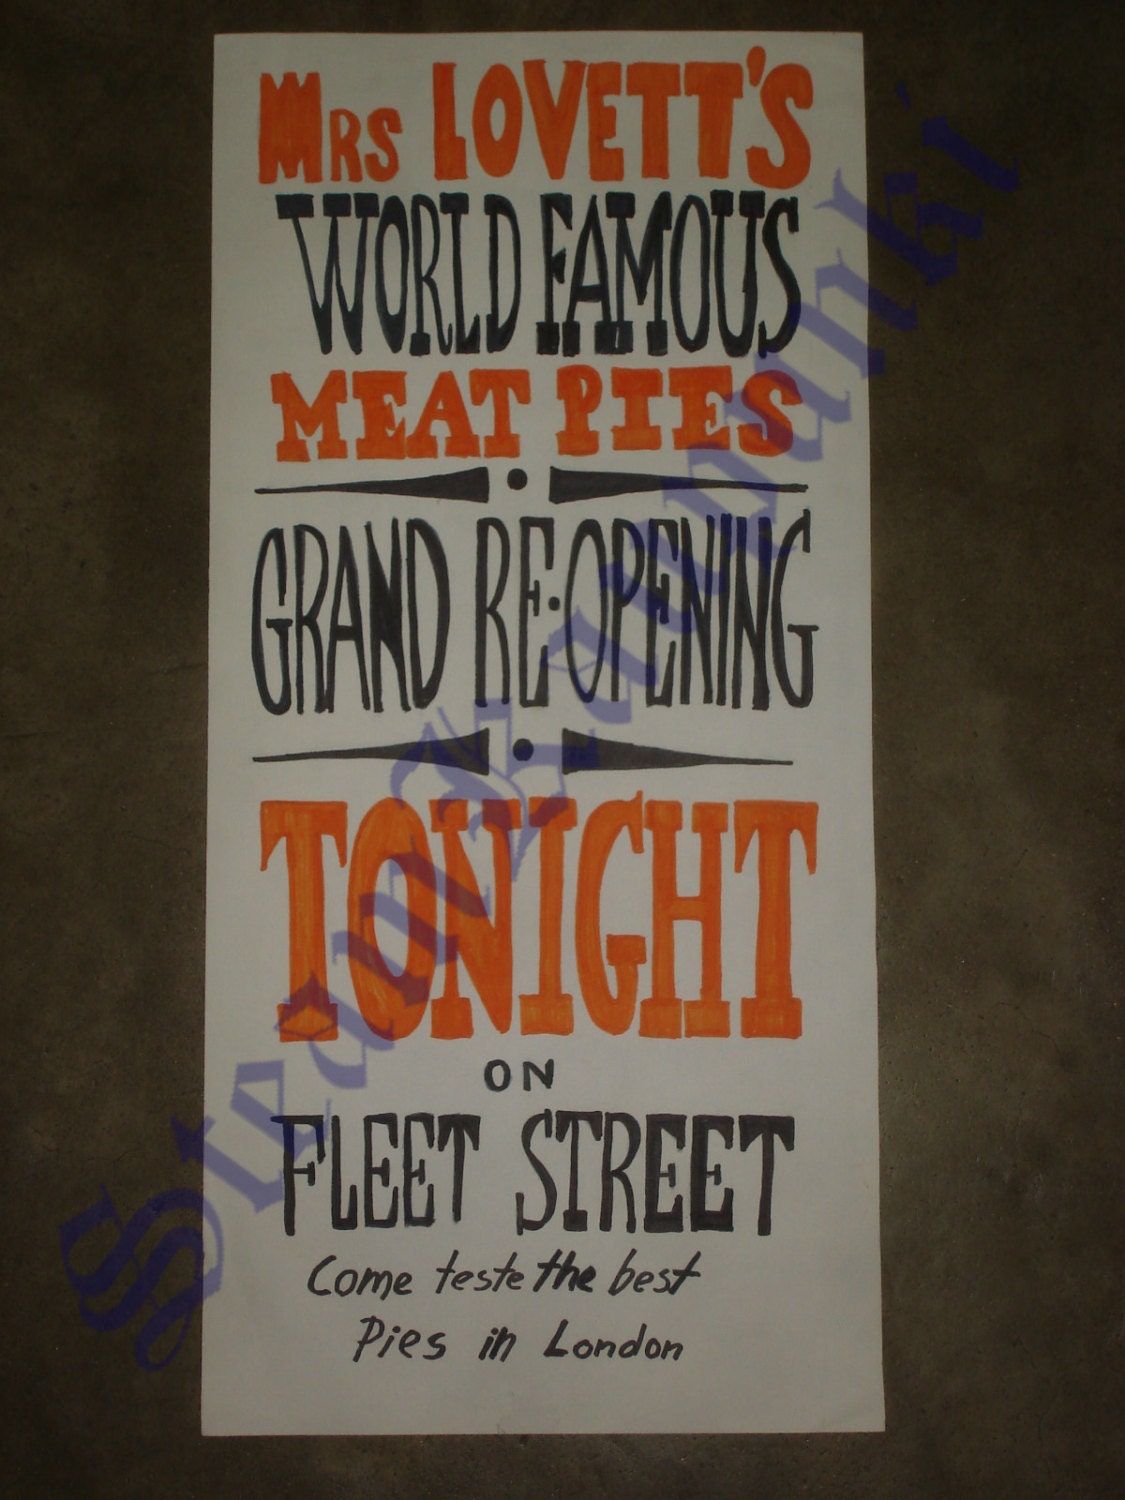 Mrs LOVETT'S
WORLD FAMOUS
MEAT PIES
GRAND RE-OPENING
TONIGHT
ON
FLEET STREET
Come teste the best
Pies in London